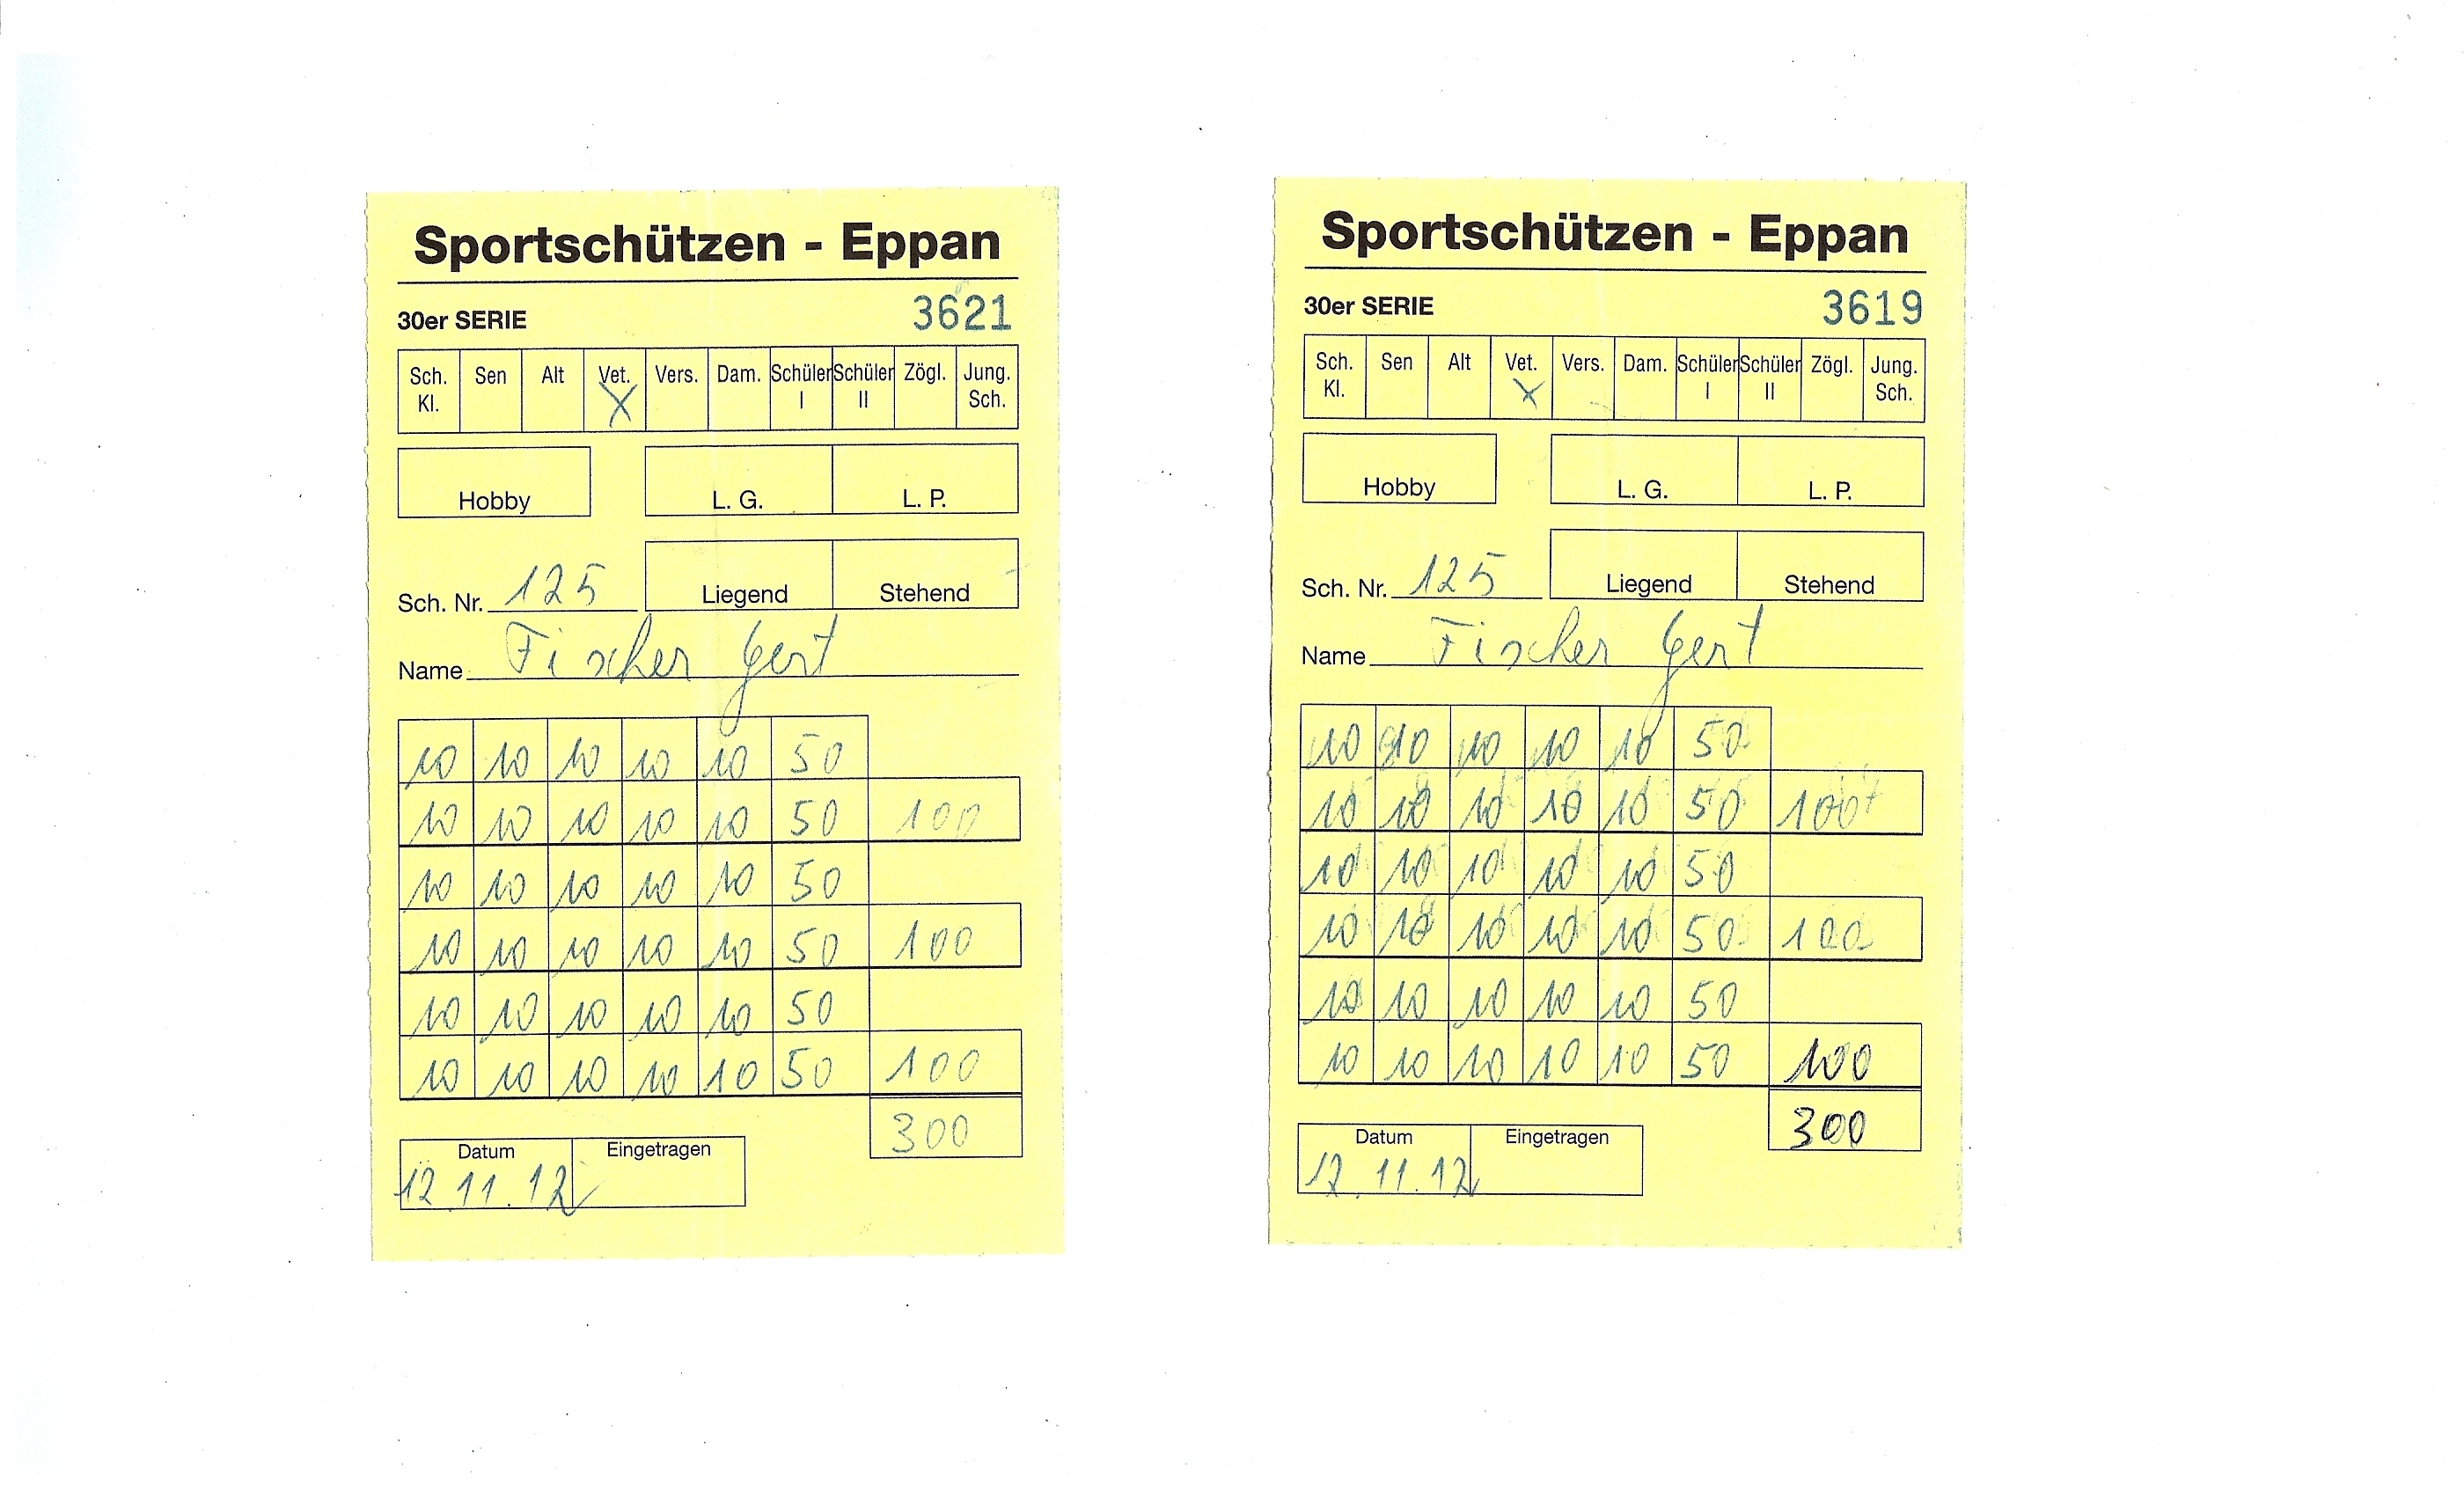 Sportschützen - Eppan
30er SERIE 3621
Sch. Kl. Sen Alt Vet. Vers. Dam. Schüler I Schüler II Zögl. Jung. Sch.
X
Hobby L. G. L. P.
Sch. Nr. 125 Liegend Stehend
Name Fischer Gert
10 10 10 10 10 50
10 10 10 10 10 50 100
10 10 10 10 10 50
10 10 10 10 10 50 100
10 10 10 10 10 50
10 10 10 10 10 50 100
300
Datum Eingetragen
12.11.12
Sportschützen - Eppan
30er SERIE 3619
Sch. Kl. Sen Alt Vet. Vers. Dam. Schüler I Schüler II Zögl. Jung. Sch.
X
Hobby L. G. L. P.
Sch. Nr. 125 Liegend Stehend
Name Fischer Gert
10 10 10 10 10 50
10 10 10 10 10 50 100
10 10 10 10 10 50
10 10 10 10 10 50 100
10 10 10 10 10 50
10 10 10 10 10 50 100
300
Datum Eingetragen
12.11.12